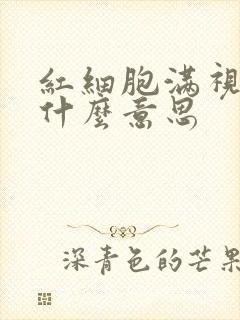 紅細胞滿視
什麼意思
深青色的芒果